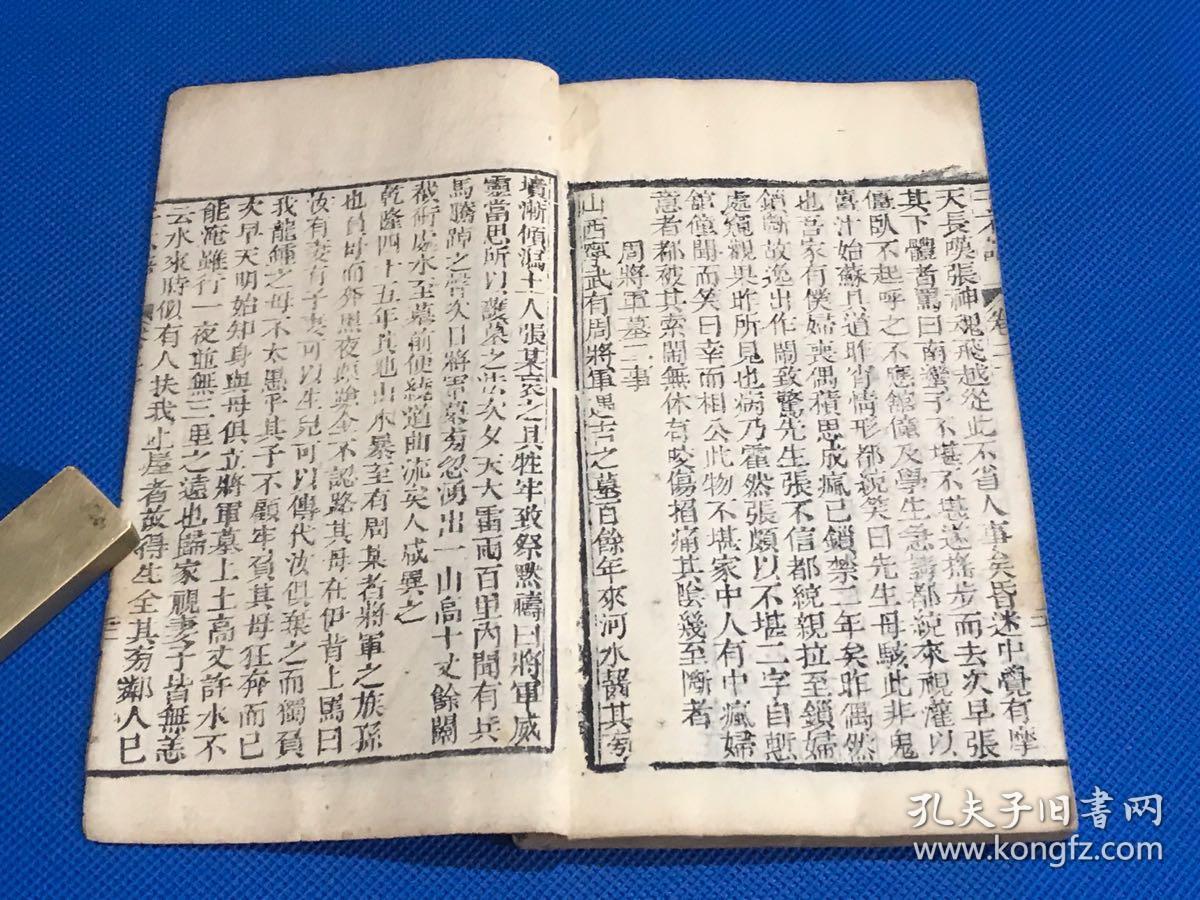 天長嘆張神魂飛越從此不省人事矣昏迷中覺有摩
其下體者罵曰南蠻子不堪不堪遂搖步而去次早張
僵臥不起呼之不應館僮及學生急請都統來視灌以
薑汁始蘇具道昨宵情形都統笑曰先生母駭此非鬼
也吾家有僕婦喪偶積思成瘋已鎖禁二年矣昨偶然
鎖斷故逸出作鬧致驚先生張不信都統親拉至鎖婦
處窺觀果昨所見也病乃霍然張頗以不堪二字自慙
館僮聞而笑曰幸而相公此物不堪家中人有中瘋婦
意者都被其索鬧無休有咬傷掐痛其陰幾至斷者
周將軍墓二事
山西寧武有周將軍遇吉之墓百餘年來河水齧其旁
墳漸傾瀉土人張某哀之具牲牢致祭默禱曰將軍威
靈當思所以護墓之法次夕天大雷雨百里內聞有兵
馬騰踔之聲次日將軍墓旁忽湧出一山高十丈餘闌
截衝處水至墓前便繞道曲流矣人咸異之
乾隆四十五年其地山水暴至有周某者將軍之族孫
也負母而奔黑夜顛蹌全不認路其母在伊背上罵曰
汝有妻有子妻可以生兒可以傳代汝俱棄之而獨負
我龍鍾之母不太愚乎其子不顧牢負其母狂奔而已
次早天明始知身與母俱立將軍墓上土高丈許水不
能淹雖行一夜並無三里之遠也歸家視妻子皆無恙
云水來時似有人扶我上屋者故得生全其旁鄰人已
三
孔夫子旧书网
www.kongfz.com